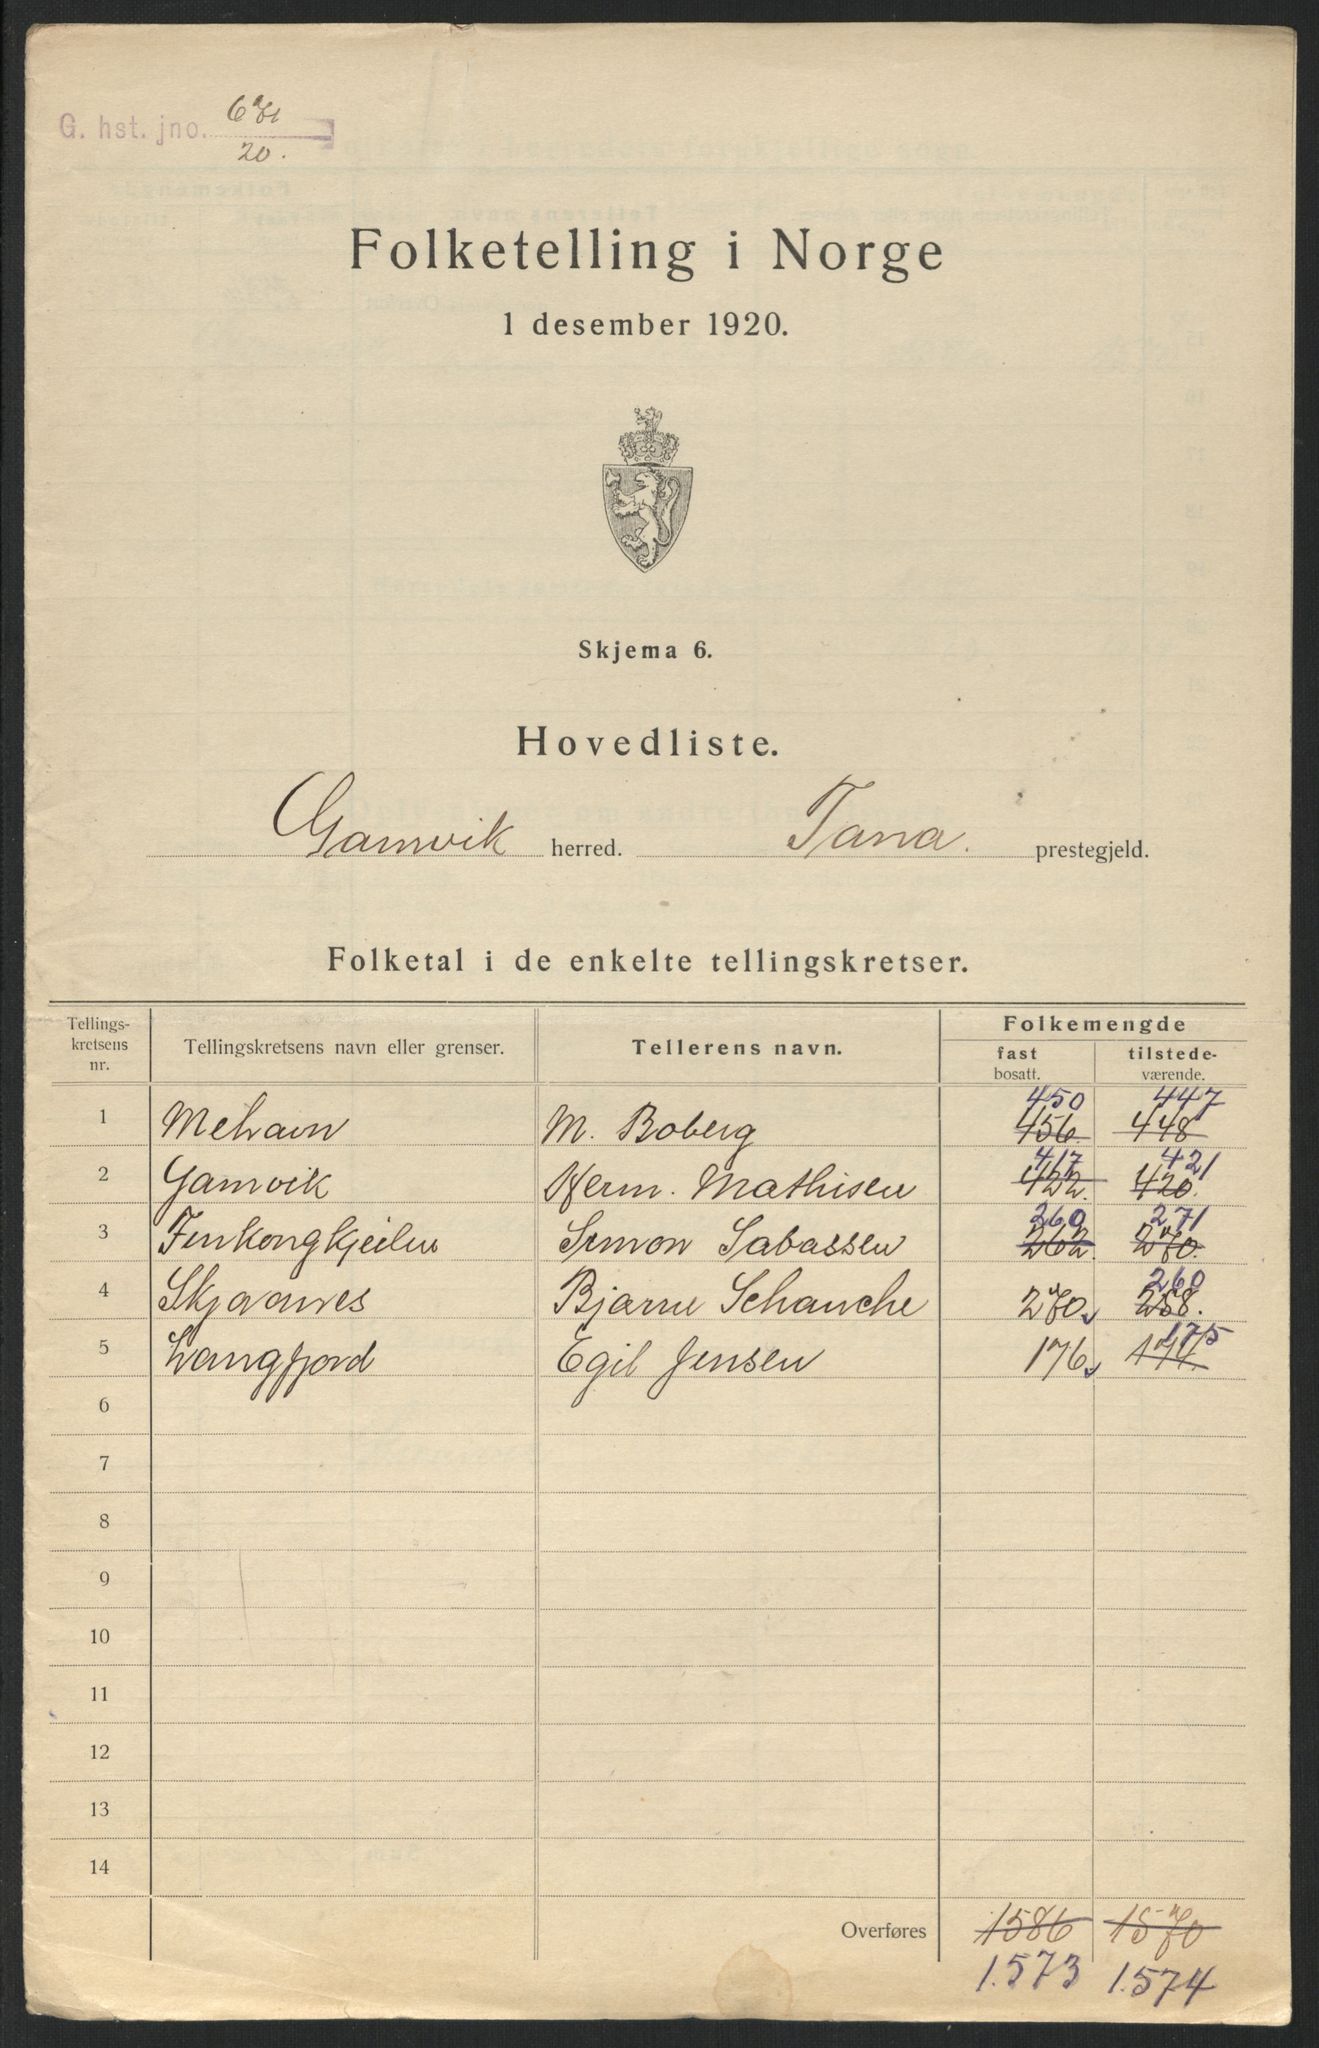 G. hst. jno. 671
20.
Folketelling i Norge
1 desember 1920.
Skjema 6.
Hovedliste.
Gamvik herred. Tana. prestegjeld.
Folketal i de enkelte tellingskretser.
Tellings-kretsens nr. Tellingskretsens navn eller grenser. Tellerens navn. Folkemengde
fast bosatt. tilstede-værende.
450 447
1 Mehavn M. Boberg 456. 448
417 421
2 Gamvik Herm. Mathisen 422. 420.
260 271
3 Finkongkjeilen Simon Sabassen 262. 270.
260
4 Skjaanes Bjarne Schanche 270. 258.
175
5 Langfjord Egil Jensen 176. 174.
6
7
8
9
10
11
12
13
14
Overføres 1586 1570
1.573 1.574